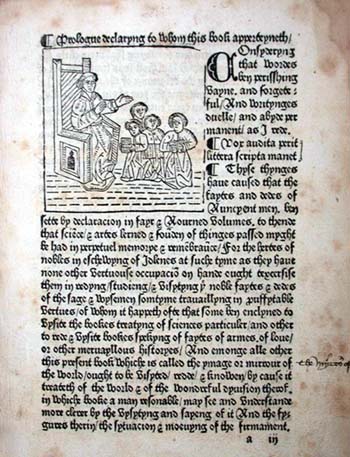 ¶ Prologue declaryng to whom this book apperteyneth/
COnsyderyng
that wordes
ben perisshing
vayne. and forgete
ful/ And writynges
duelle/ and abyde per
manent/ as I rede.
¶ Vox audita perit
littera scripta manet
¶ Thyse thynges
haue caused that the
faytes and dedes of
Auncyent men. ben
sette by declaracion in fayr & Aourned Volumes. to thende
that scie͞ce & artes lerned & founden of thinges passed myght
be had in perpetuel memorye & reme͞braunce/ For the hertes of
nobles in eschewyng of Idlenes at suche tyme as they haue
none other Vertuouse occupacio͞n on hande ought texcersise
them in redyng/studieng/& Visytyng yͤ noble faytes & dedes
of the sage & Wysemen somtyme trauaillyng in prouffytable
Vertues/ of whom it happeth ofte that some ben enclyned to
Visite the bookes treatyng of sciences particuler/ and other
to rede & Visyte bookes spekyng of faytes of armes. of loue/
or other meruayllous historyes/ And emonge alle other
this present booke whiche is called the ymage or mirrour of
the world/ought to be Visyted/ redde/ & knowen/ by cause it
treateth of the world & of the wonderful dyuision therof.
in whiche booke a man resonable/ may see and Vnderstande
more clerer by the Visytyng and seeyng of it And the fyg
gures therin/ the sytuacion & moeuyng of the firmament.
a iiij